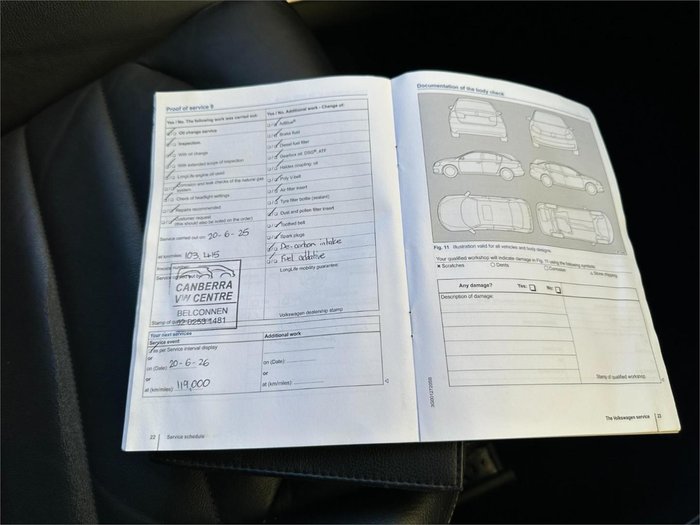 Proof of service 9
Yes / No. The following work was carried out:
Oil change service
Inspection
With oil change
With extended scope of inspection
LongLife engine oil used
Corrosion and leak checks of the natural gas
system
Check of headlight settings
Repairs recommended
Customer request
(this should also be noted on the order)
Service carried out on: 20-6-25
at km/miles: 103,415
Service carried out by:
CANBERRA
VW CENTRE
BELCONNEN
02 6253 1481
Stamp of
Yes / No. Additional work - Change of:
AdBlue®
Brake fluid
Diesel fuel filter
Gearbox oil: DSG®, ATF
Haldex coupling: oil
Poly V-belt
Air filter insert
Tyre filler bottle (sealant)
Dust and pollen filter insert
Toothed belt
Spark plugs
De-carbon intake
Fuel additive
LongLife mobility guarantee:
Volkswagen dealership stamp
Your next services
Service event:
Yes per Service interval display
or
on (Date): 20-6-26
or
at (km/miles): 119,000
Additional work
on (Date):
or
at (km/miles):
22 Service schedule
Documentation of the body check
Fig. 11 Illustration valid for all vehicles and body designs.
Your qualified workshop will indicate damage in Fig. 11 using the following symbols:
× Scratches ○ Dents □ Corrosion △ Stone chipping
Any damage? Yes: No:
Description of damage:
Stamp of qualified workshop
The Volkswagen service 23